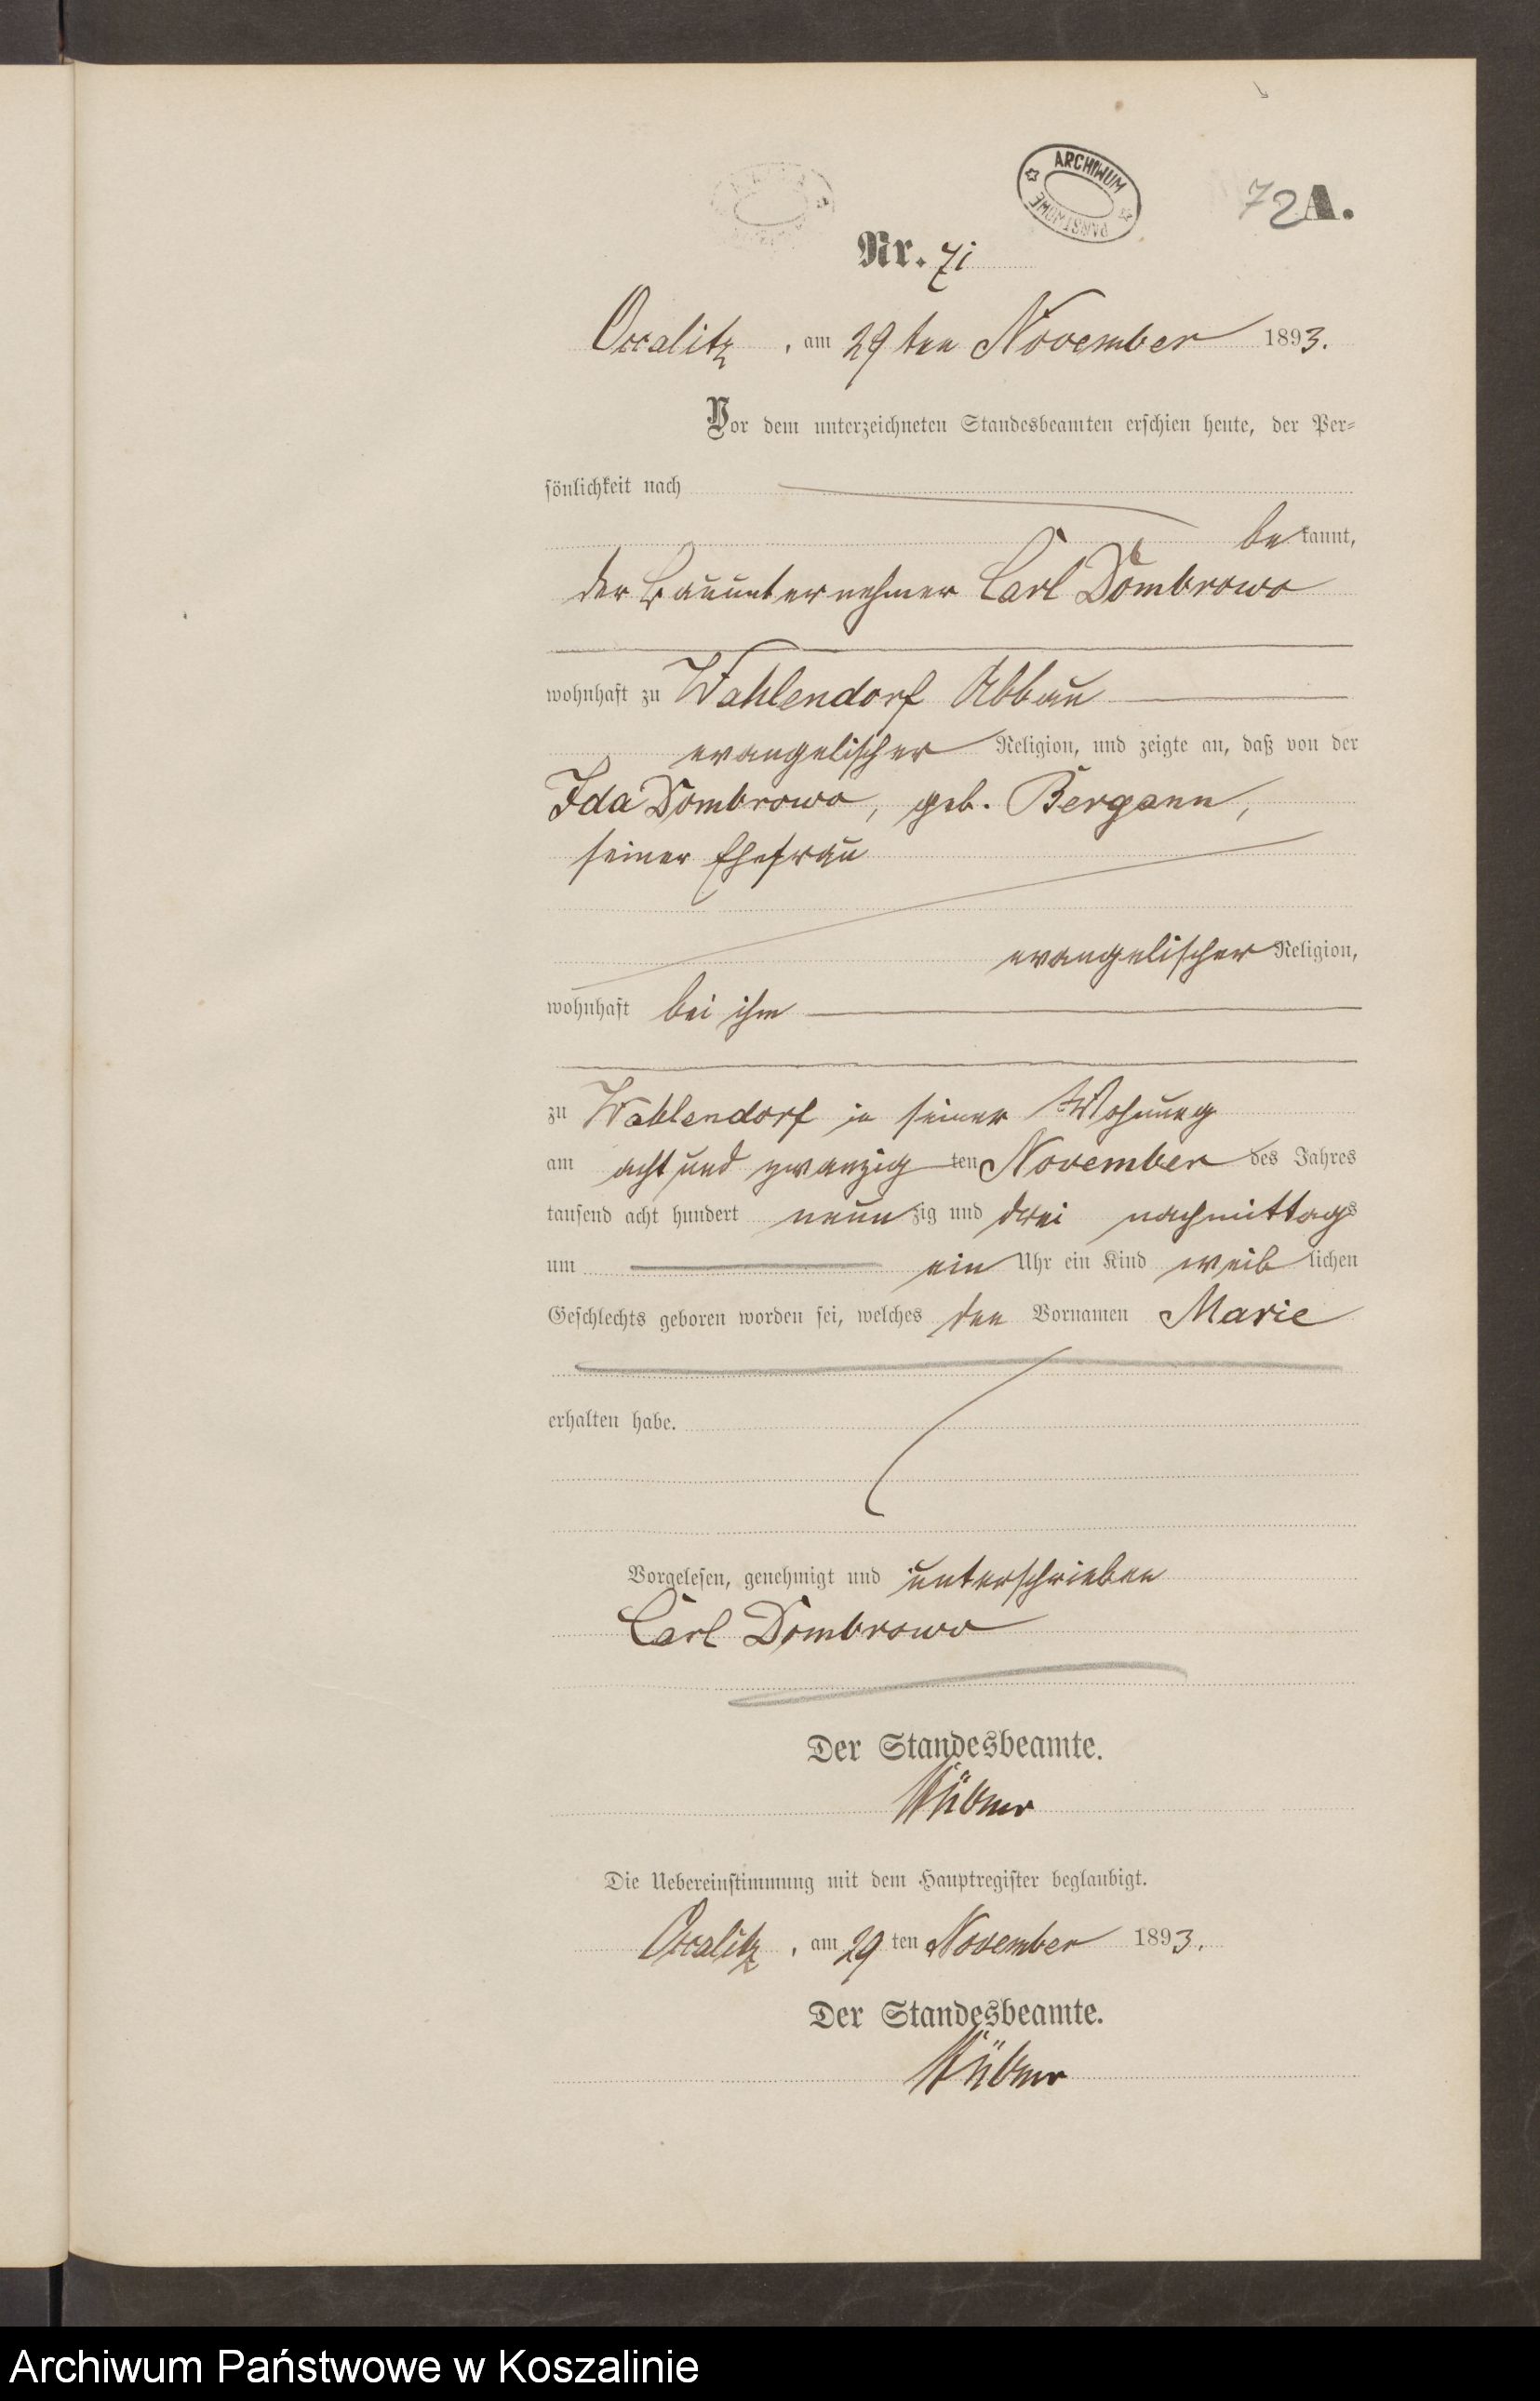 ARCHIWUM
PAŃSTWOWE
72 A.
Nr. 71
Occalitz, am 29ten November 1893.
Vor dem unterzeichneten Standesbeamten erschien heute, der Per-
sönlichkeit nach
bekannt,
der Bauunternehmer Carl Dombrowo
wohnhaft zu Wahlendorf Abbau
evangelischer Religion, und zeigte an, daß von der
Ida Dombrowo, geb. Bergann,
seiner Ehefrau
evangelischer Religion,
wohnhaft bei ihm
zu Wahlendorf in seiner Wohnung
am acht und zwanzig ten November des Jahres
tausend acht hundert neunzig und drei nachmittags
um ein Uhr ein Kind weiblichen
Geschlechts geboren worden sei, welches den Vornamen Marie
erhalten habe.
Vorgelesen, genehmigt und unterschrieben
Carl Dombrowo
Der Standesbeamte.
Die Uebereinstimmung mit dem Hauptregister beglaubigt.
Occalitz, am 29ten November 1893.
Der Standesbeamte.
Archiwum Państwowe w Koszalinie